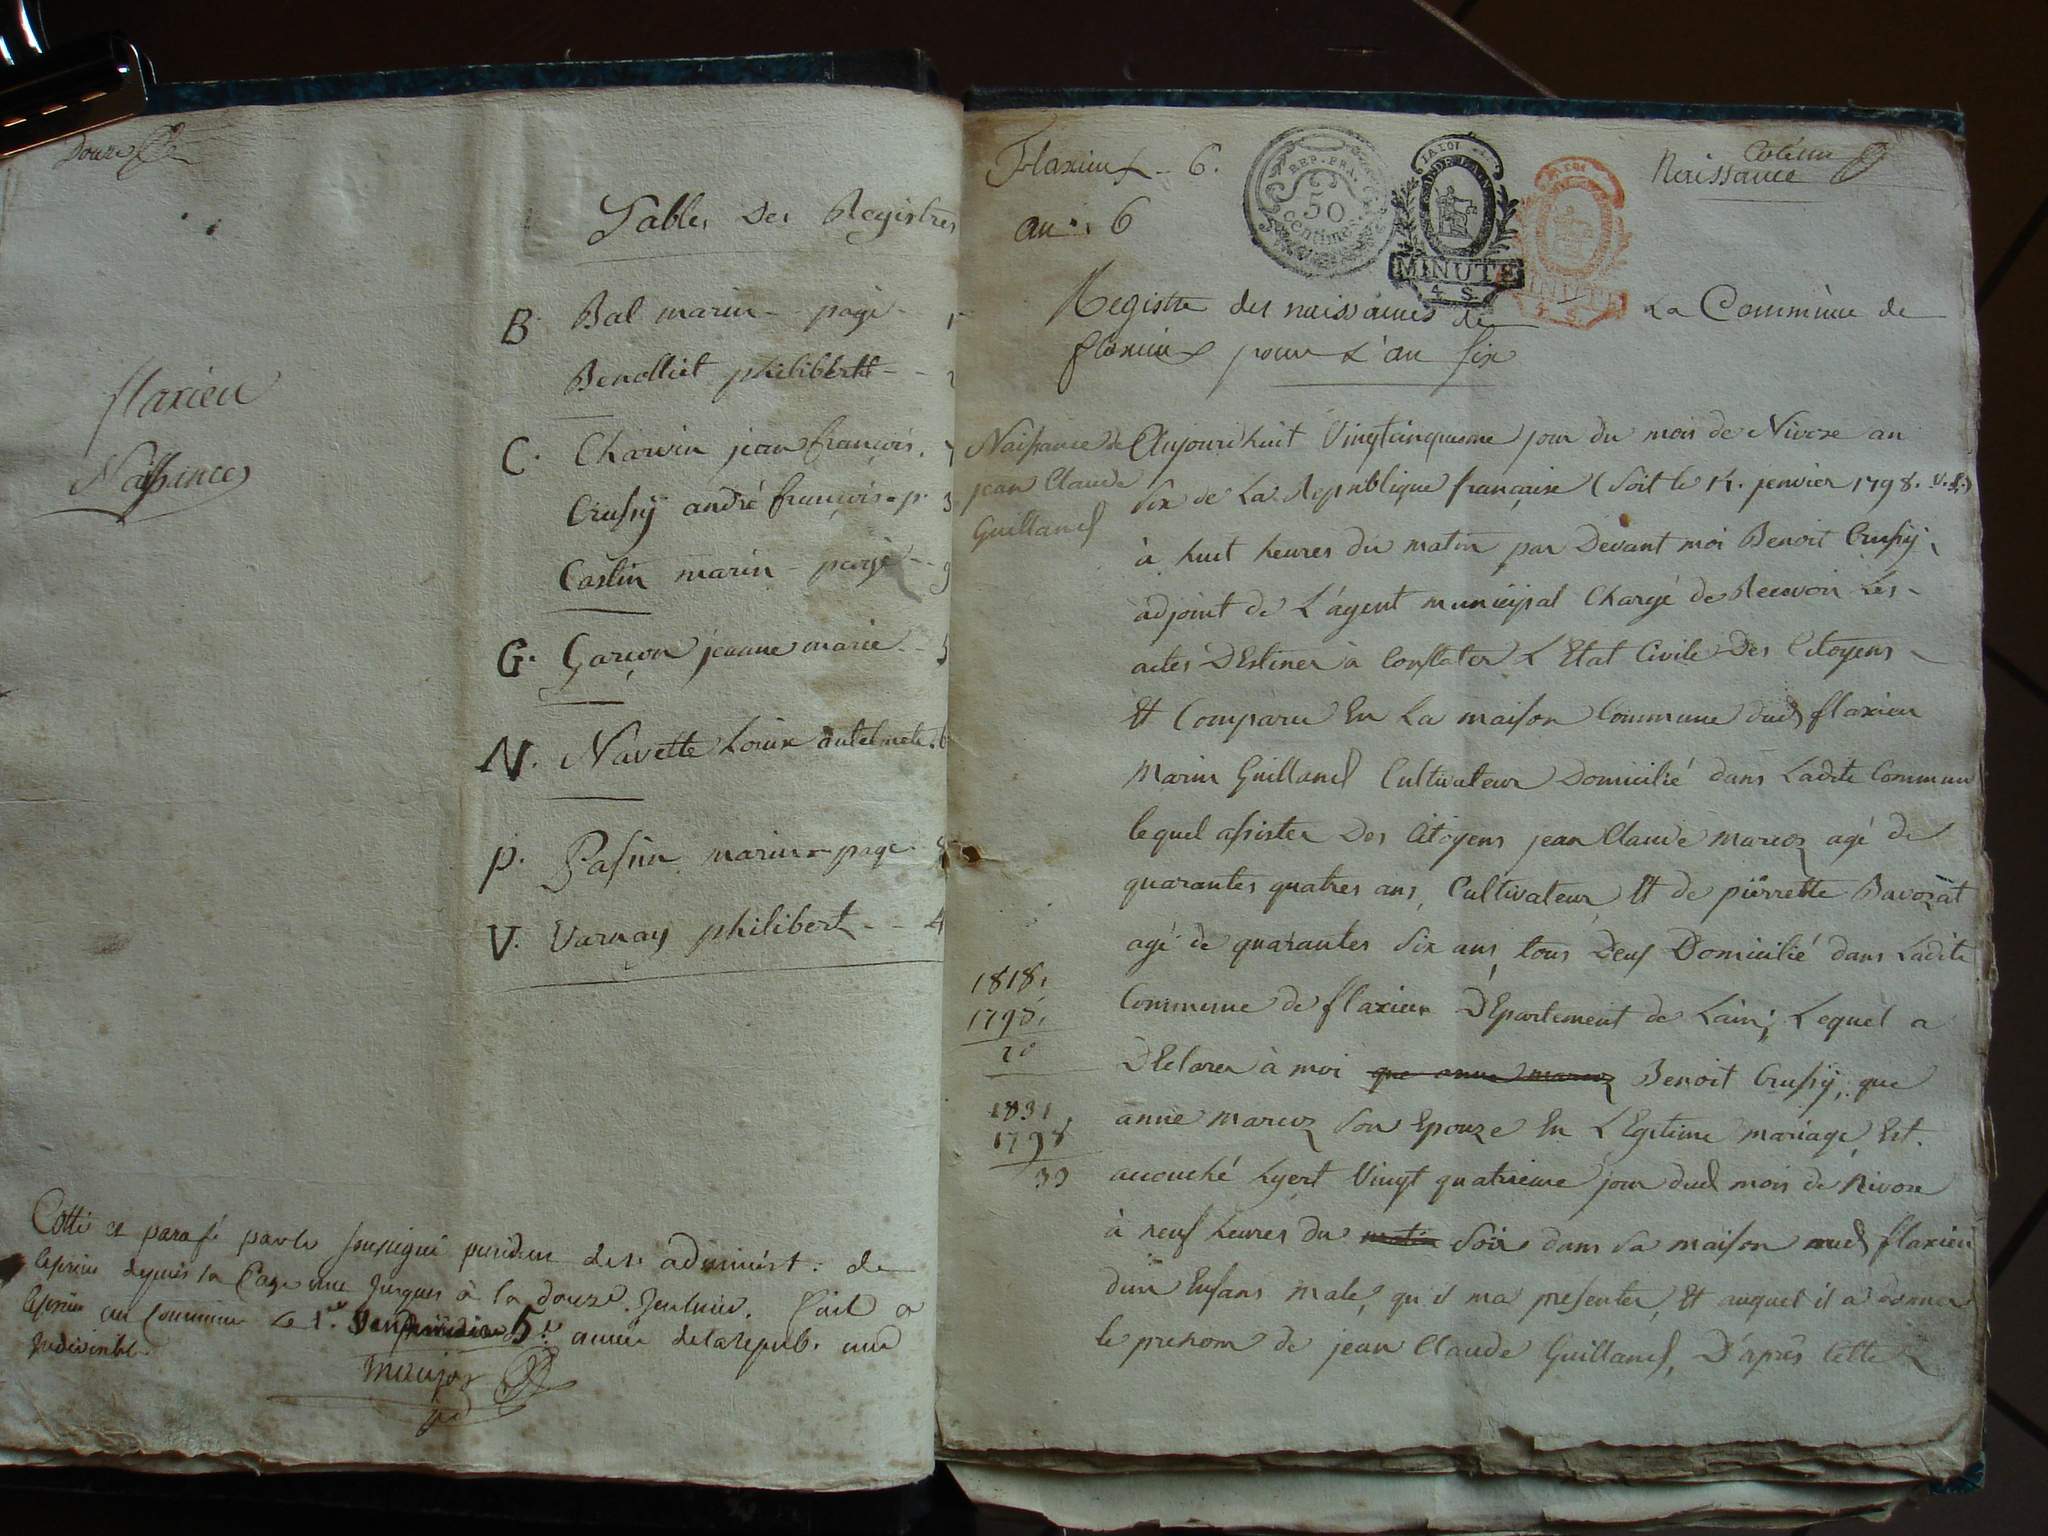 Douze
flaxieu
Naissances
Table Des Registres
B. Bal marin - page - 1
Benolliet philiberte - - 2
C. Charvin jean françois. 7
Crussÿ andré françois - p. 3
Castin marin - page - - 9
G. Garçon jeanne marie - - 5
N. Navette Louise antelmete. 6
P. Passin marin - page - 8
V. Varnay philibert - - 4
Cotté et parafé par le soussigné président de l' administ: de
depuis la Page une jusques à la douze. fait a
le 1er Vendémiaire 5e année de la repub. une
indivisible.
Flaxieu - 6.
REP. FRA.
50
centimes
LA LOI
MINUTE
4. S.
LA LOI
MINUTE
Naissance
an 6
Registre des naissances de La Commune de
flaxieu pour L'an six
Naissance de
jean Claude
Guilland
Aujourdhuit Vingtcinquieme jour du mois de Nivose an
six de La Republique française (soit le 14. janvier 1798. v. s.)
à huit heures du matin par Devant moi Benoit Crussÿ
adjoint de L'agent municipal Chargé de Recevoir Les
actes DEstiner à Constater L'Etat Civile Des Citoyens
Et Comparu En La maison Commune dud flaxieu
Marin Guilland Cultivateur Domicilié dans Ladite Commune
lequel assister Des Citoyens jean Claude marcoz agé de
quarantes quatres ans, Cultivateur Et de piérrette Bavozat
agé de quarantes six ans, tous Deux Domicilié dans Ladite
Commune de flaxieu DEpartement de Lain, Lequel a
DEclarer à moi que anne marcoz Benoit Crussÿ, que
anne marcoz son Epouze En LEgitime mariage, Est
accouché hyert Vingt quatrieme jour dud mois de Nivose
à neuf heures du matin soir dans sa maison aud flaxieu
dun Enfans male, qu'il ma presenter, Et auquel il a donner
le prenom de jean Claude Guilland, D'après cette
1818,
1798,
20
1831
1798
33